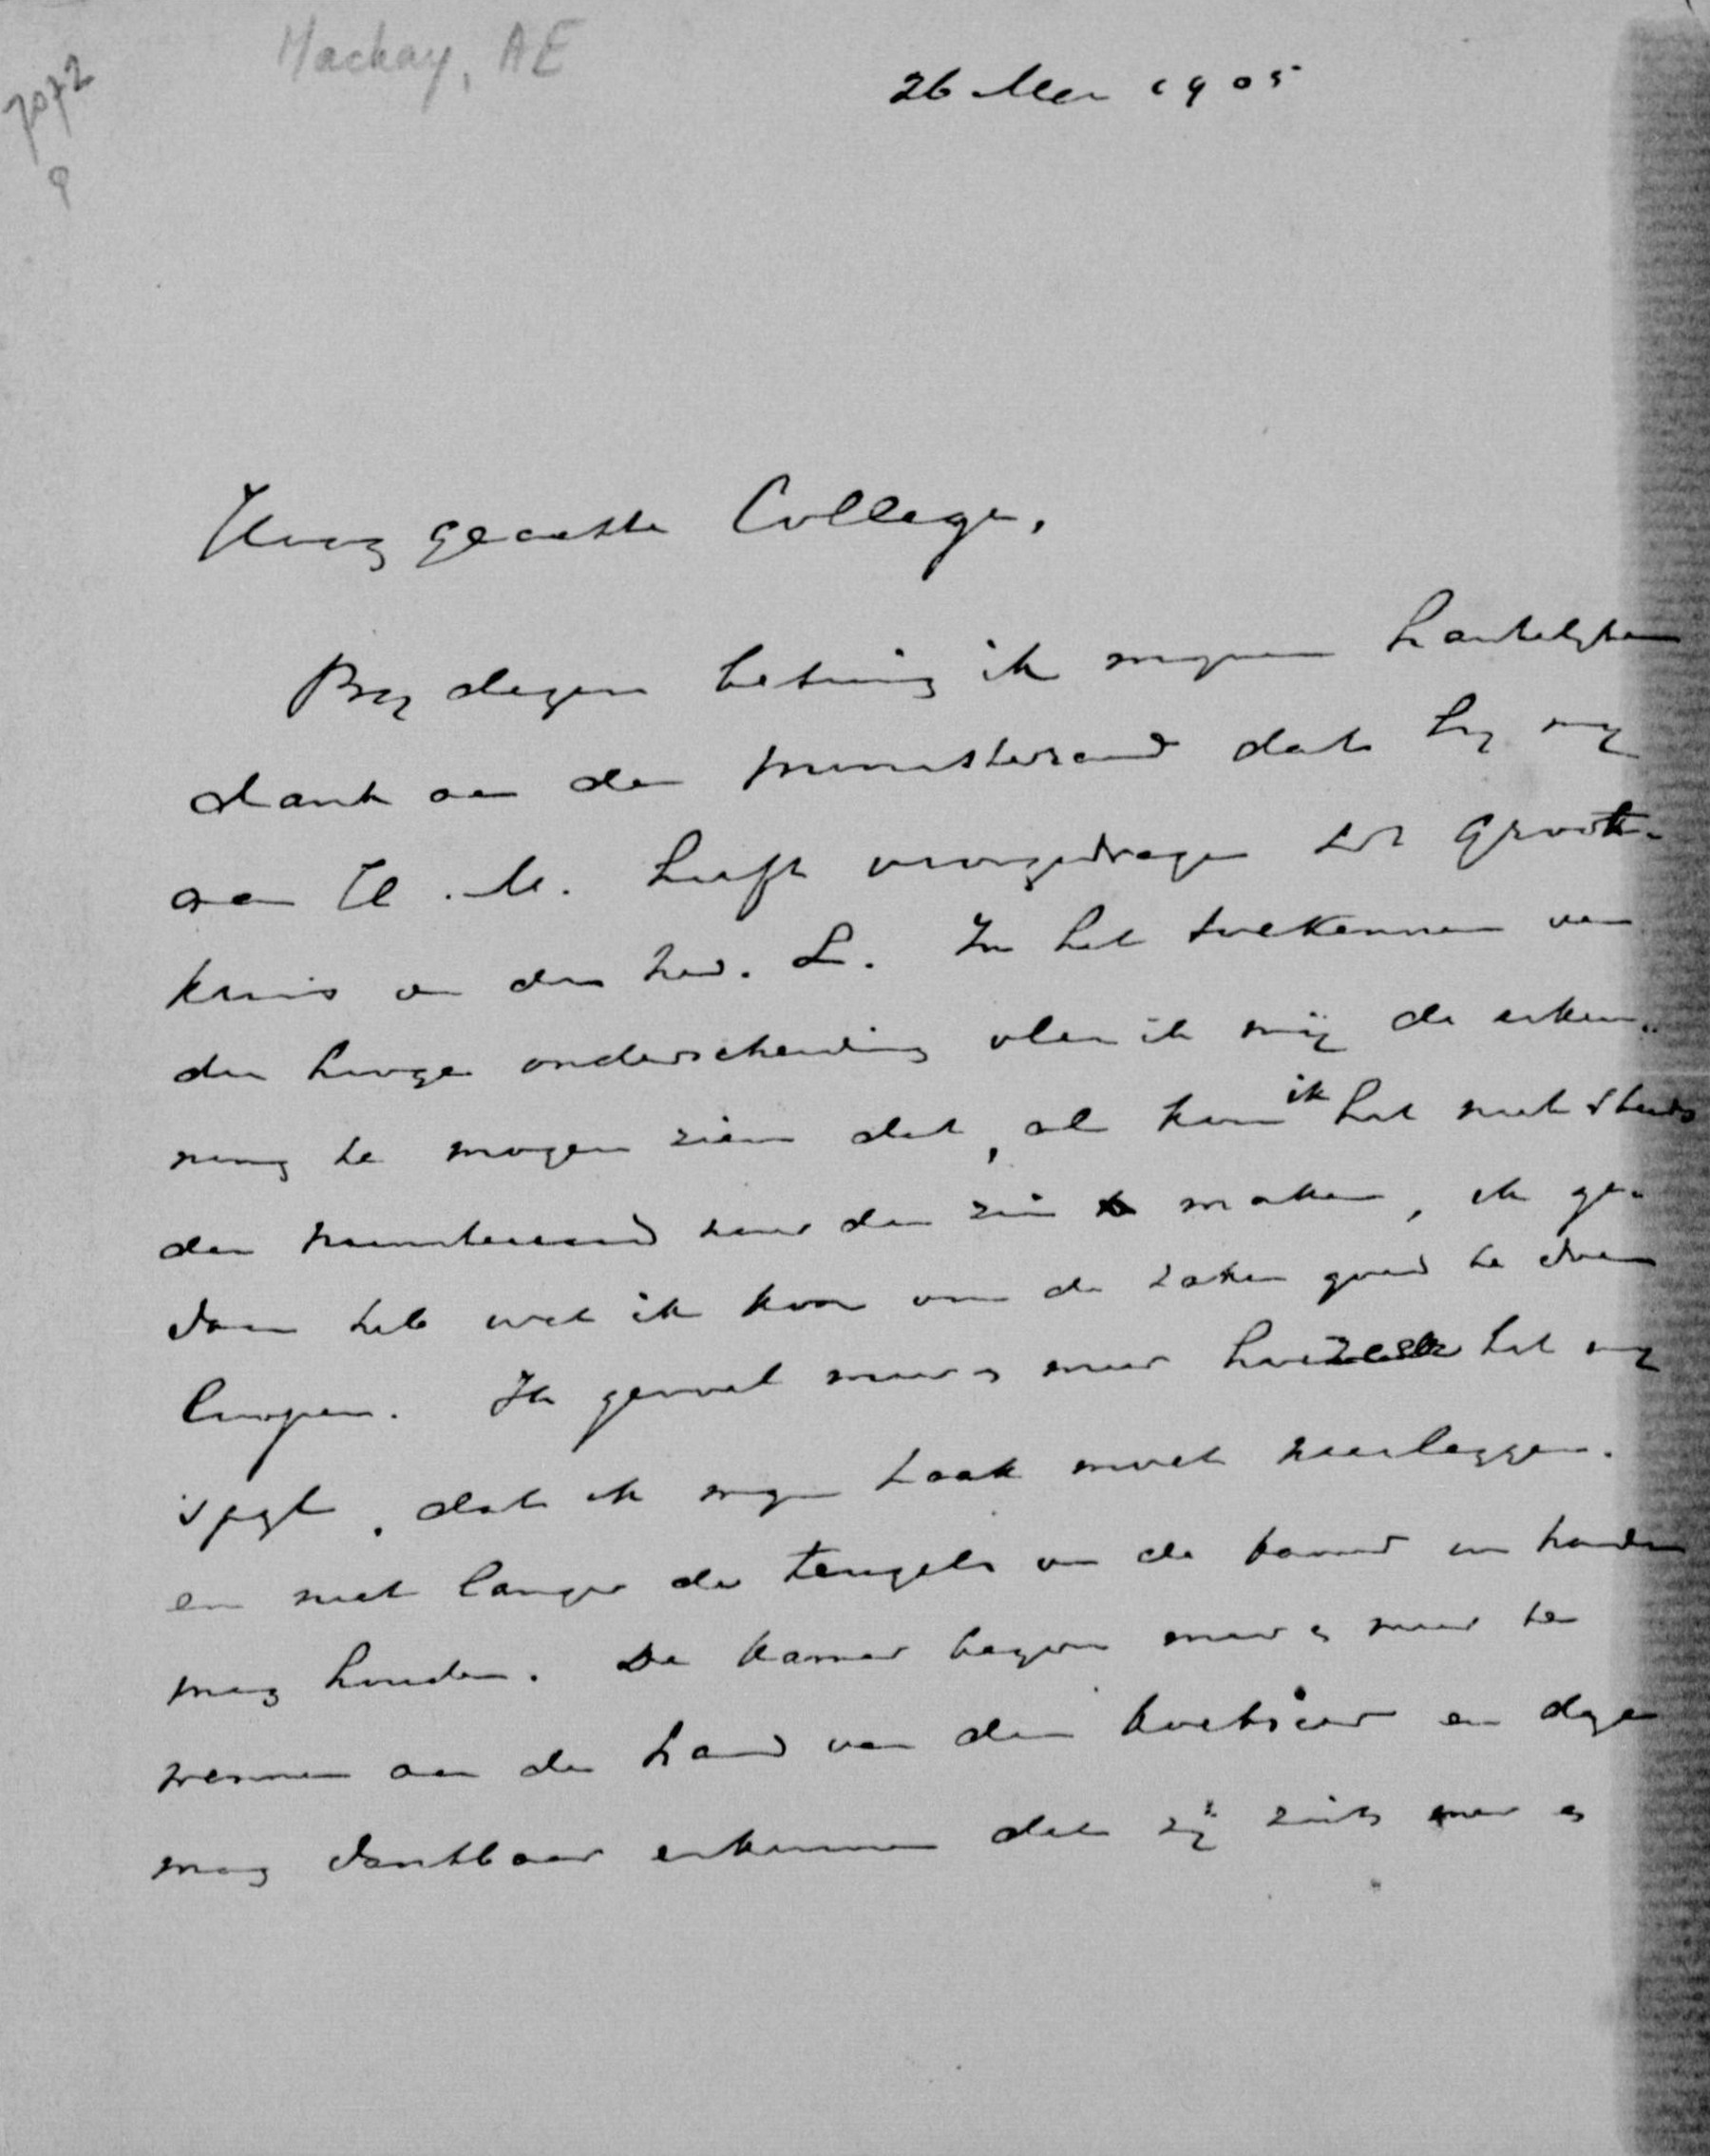 Mackay, AE
7072
9
26 Mei 1905
Hoog geachte Collega,
By dezen betuig ik mynen hartelyken
dank aan den ministerraad dat hy my
aan H. M. heeft voorgedragen tot Groot-
kruis v den Ned. L. In het toekennen van
die hooge onderscheiding meen ik mij de erken-
ning te mogen zien dat, al kon ik het niet steeds
den ministerraad naar den zin te maken, ik ge-
daan heb wat ik kon om de zaken goed te doen
loopen. Ik gevoel meer en meer hoezeer het my
spyt, dat ik myn taak moet neerleggen.
en niet langer de teugels van de kamer in handen
mag houden. De kamer begon meer en meer te
wennen aan de hand van den koetsier en deze
mag dankbaar erkennen dat zij zich meer en